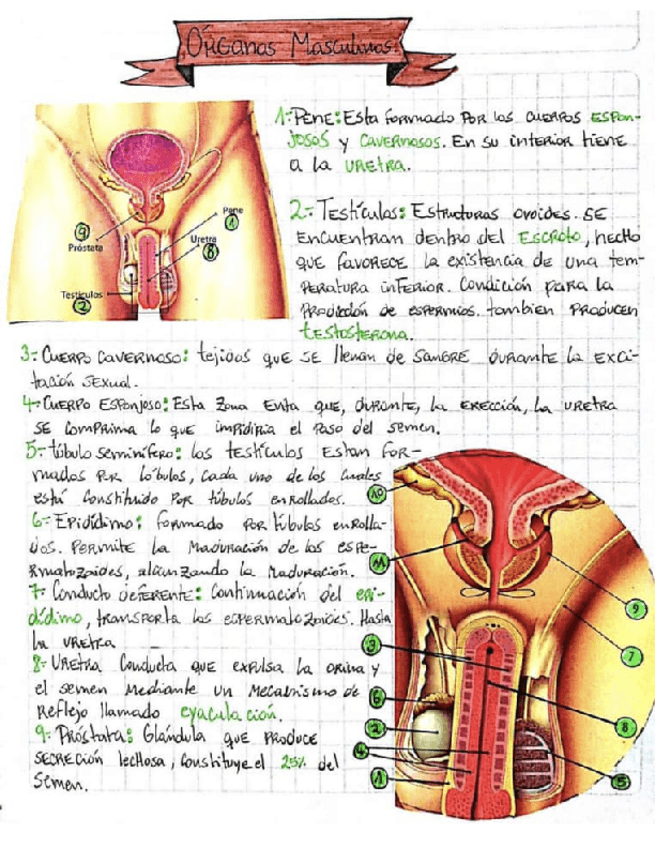 Órganos Masculinos.
1-: Pene: Esta formado por los cuerpos espon-
josos y cavernosos. En su interior tiene
a la uretra.
2-: Testículos: Estructuras ovoides. Se
encuentran dentro del escroto, hecho
que favorece la existencia de una tem-
peratura inferior. Condición para la
producción de espermios. tambien producen
testosterona.
Pene
1
9
Próstata
Uretra
8
Testículos
2
3-: Cuerpo cavernoso: tejidos que se llenan de sangre durante la exci-
tación sexual.
4-: Cuerpo Esponjoso: Esta zona evita que, durante, la erección, la uretra
se comprima lo que impidiria el paso del semen.
5-: túbulo seminífero: los testículos estan for-
mados por lóbulos, cada uno de los cuales
está constituido por túbulos enrollados.
6-: Epidídimo: formado por túbulos enrolla-
dos. Permite la maduración de los espe-
rmatozoides, alcanzando la maduración.
7-: Conducto deferente: Continuación del epi-
dídimo, transporta los espermatozoides. Hasta
la uretra
8-: Uretra Conducta que expulsa la orina y
el semen mediante un mecanismo de
reflejo llamado eyaculación.
9-: Próstata: Glándula que produce
secreción lechosa, constituye el 25% del
semen.
10
11
9
7
3
6
8
2
4
5
1